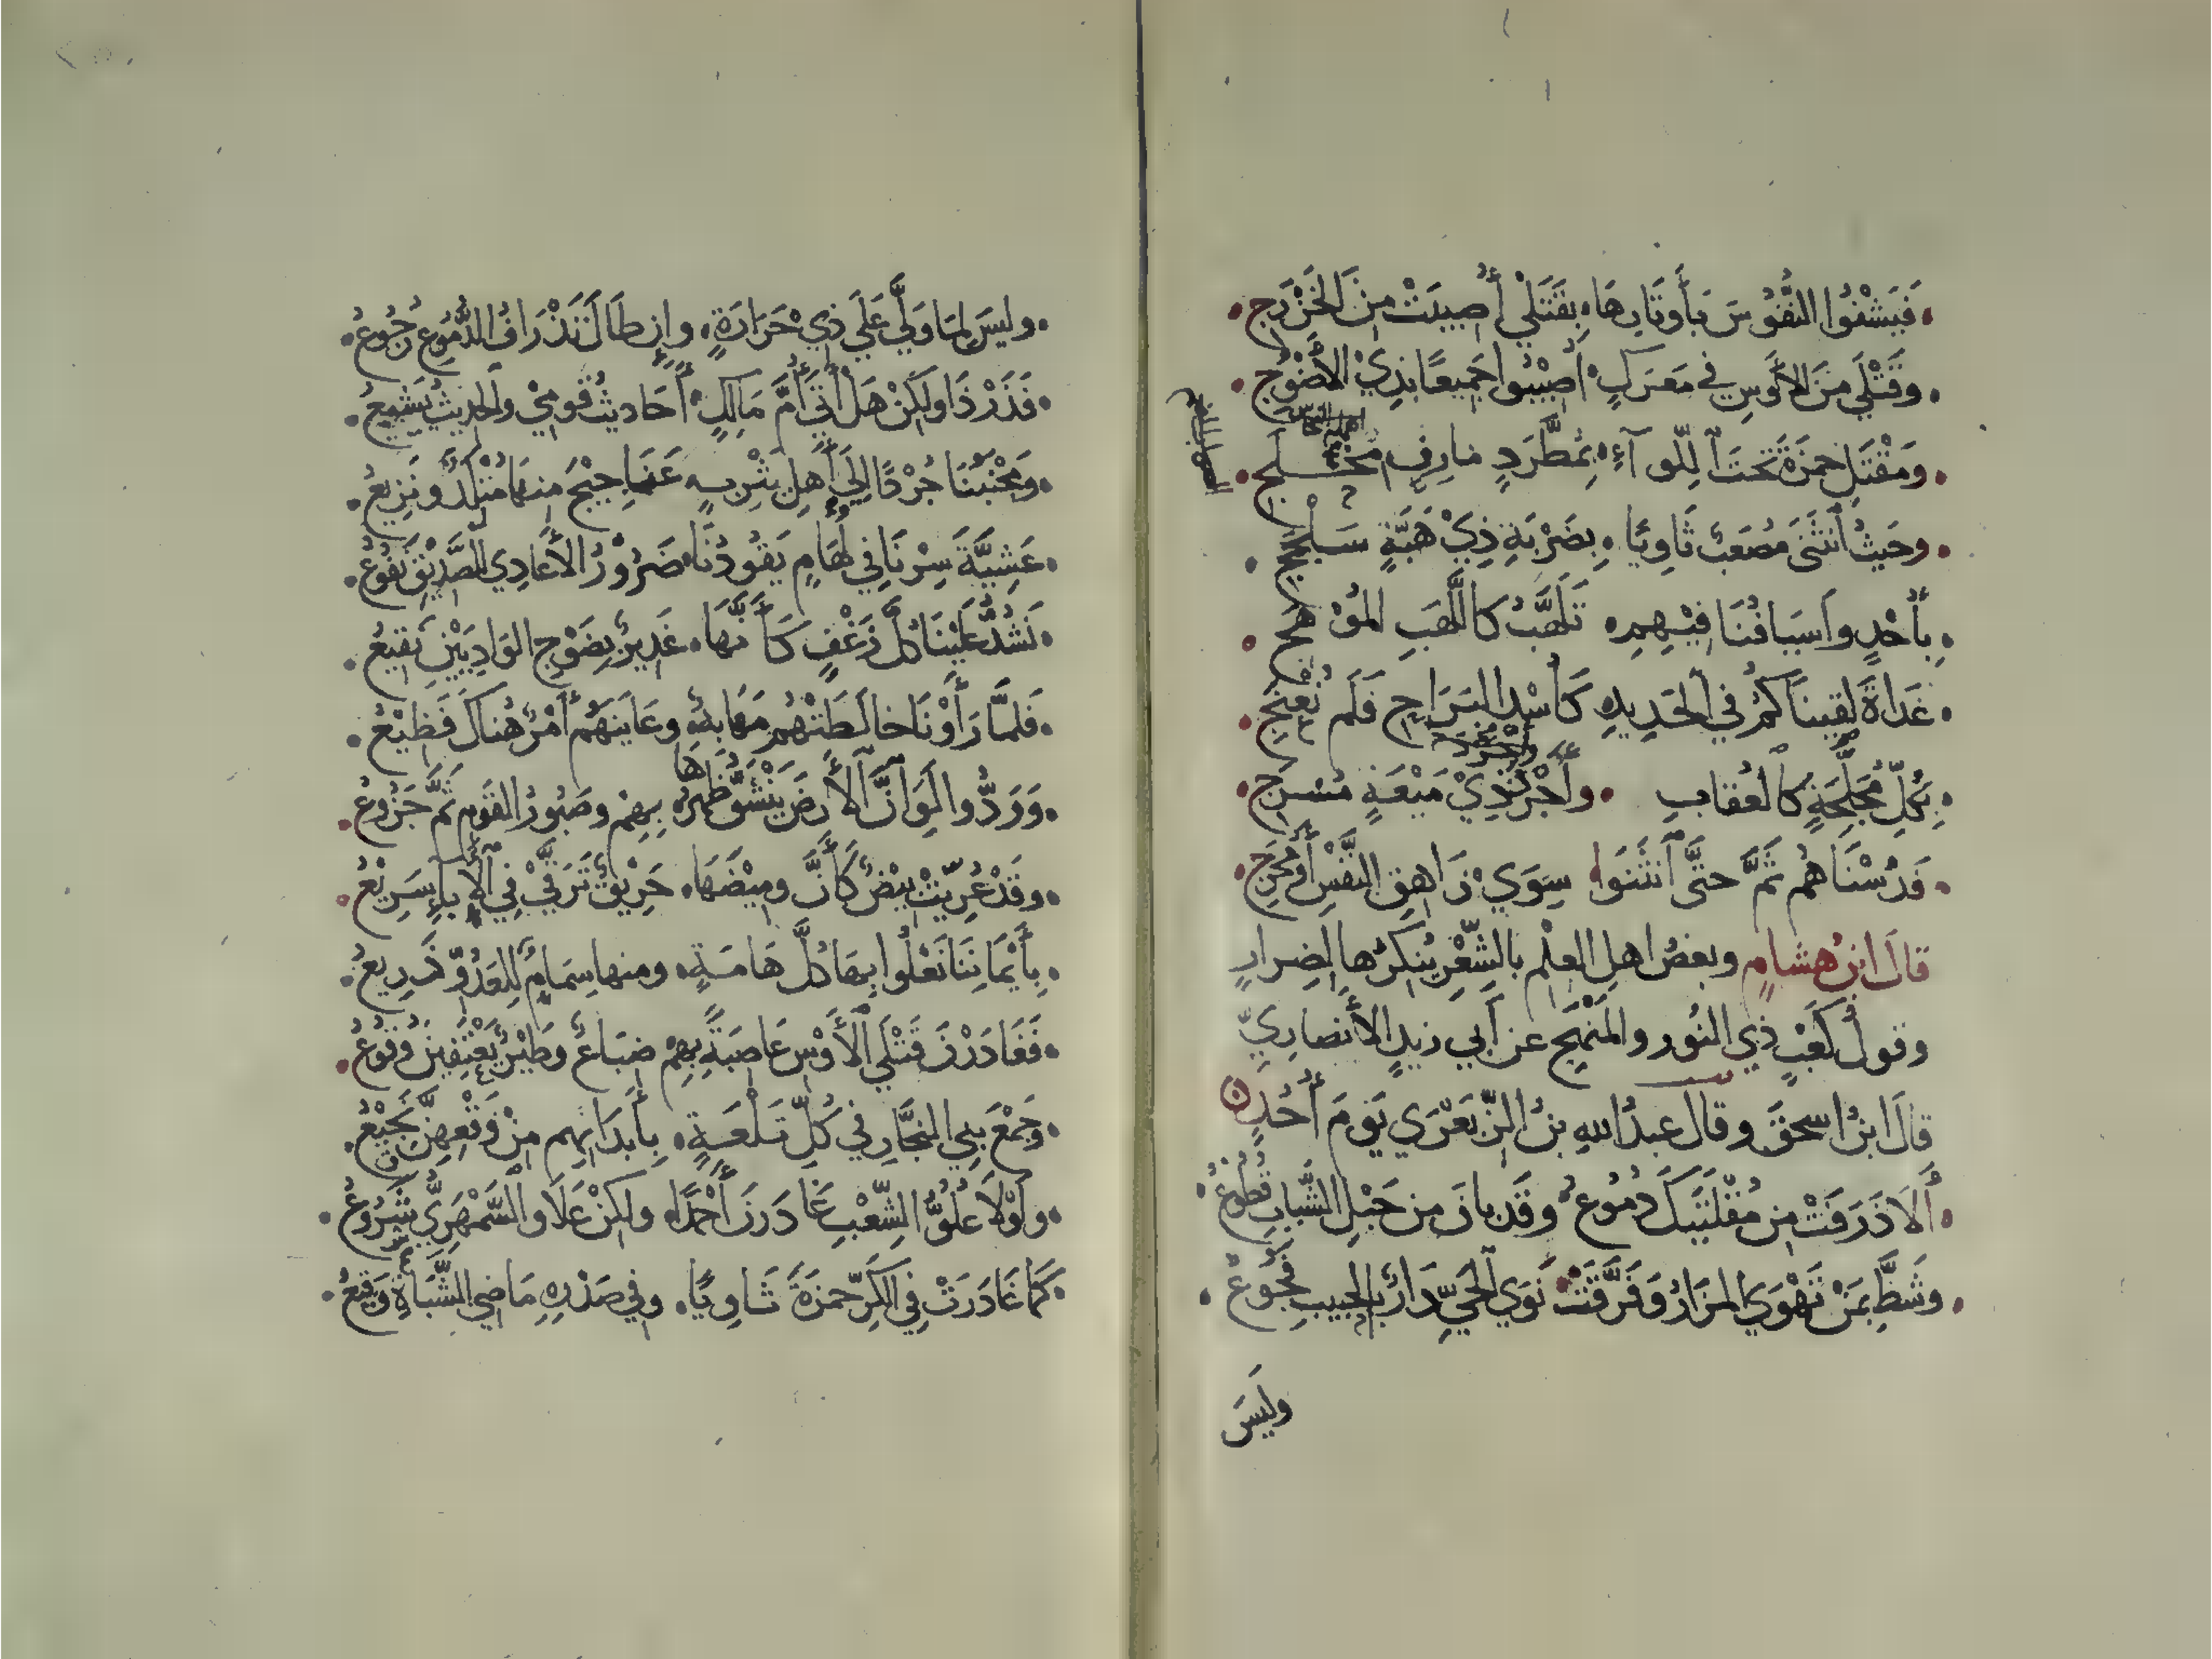 فَيَشْفُوا النُّفُوسَ بَأَوْتَارِهَا بِقَتْلَي أُصِيبَتْ مِنَ الْخَزْرَجِ
وقَتْلَي مِنَ الأَوْسِ في مَعْرَكٍ أُصِيْبُوا جَمِيعًا بذِيْ الأَضْوُجِ
وَمَقْتَلِ حمزَةَ تَحْتَ اللِّوآءِ بِمُطَّرَدٍ مَارِنٍ مُخْلَجِ
وحَيثُ انْثَنَى مُصْعَبٌ ثَاوِيًا بِضَرْبَةِ ذِيْ هَبَّةٍ سَلْجَجِ
بِأُحْدٍ وأَسْيَافُنَا فِيْهِمِ تَلَهَّبُ كَاللَّهَبِ المُوْهَجِ
غَدَاةَ لَقِينَاكُمُ في الحَدِيدِ كَأُسْدِ البَرَاحِ فَلَم نُعْنِجِ
بِكُلِّ مُجَلِّحَةٍ كَالعُقَابِ وأَجْرَدَ ذِيْ مَيْعَةٍ مُسْرَجِ
فَدُسْنَاهُم ثَمَّ حتَّى انْثَنَوا سِوَي زَاهِقِ النَّفْسِ أَو مُحْرَجِ
قالَ ابنُ هشامٍ وبعضُ اهلِ العلْمِ بالشِّعْرِ يُنكِرُها لِضِرارٍ
وقولُ كَعْبٍ ذي النُور والمَنْهَجِ عن أبي زيدٍ الأنصارِيِّ
قالَ ابنُ اسحقَ وقال عبدُ اللهِ بنُ الزِّبَعْرَي يَومَ أُحُدٍ
أَلَا ذَرَفَتْ مِن مُقْلَتَيكَ دُمُوعُ وقَد بانَ من حَبْلِ الشَّبابِ قُطُوعُ
وشَطَّ بِمَنْ تَهْوَي المَزَارُ وَفَرَّقَتْ نَوَي الحَيِّ دَارٌ بالحبيبِ فَجُوعُ
وليسَ
وليسَ لِمَا وَلَّي عَلَي ذِيْ حَرَارَةٍ وإِن طَالَ تَذْرَافُ الدُّمُوعِ رُجُوعُ
فَذَرْ ذَا ولَكِنْ هَلْ أَتَي أُمَّ مَالِكٍ أَحَادِيثُ قَومِي والحَدِيثُ يَشِيعُ
ومَجْنَبُنَا جُرْدًا إلَي أَهلِ يَثْرِبٍ عَنَاجِيْجَ منها مُتْلَدٌ وَنَزِيعُ
عَشِيَّةَ سِرْنَا فِي لُهَامٍ يَقُودُنَا ضَرُوْرُ الأَعَادِي للصَّدِيْقِ نَفُوعُ
نَشُدُّ عَلَيْنَا كُلَّ زَغْفٍ كَأَنَّهَا غَدِيرٌ بِضَوْجِ الوَادِيَيْنِ نَقِيعُ
فَلَمَّا رَأَوْنَا خالَطَتْهُم مَهَابَةٌ وعَايَنَهُم أَمْرٌ هُنَاكَ فَظِيْعُ
وَوَدُّوا لَوَ انَّ الأَرضَ يَنْشَقُّ ظَهْرُهَا بِهِمْ وصَبُورُ القَومِ ثَمَّ جَزُوعُ
وقَدْ عُرِّيَتْ بِيْضٌ كَأَنَّ ومِيْضَهَا حَرِيقٌ تَرَقَّي فِي الأَبَاءِ سَرِيْعُ
بِأَيْمَانِنَا نَعْلُوا بِهَا كُلَّ هَامَةٍ ومنها سِمَامٌ لِلعَدُوِّ ذَرِيعُ
فَغَادَرْنَ قَتْلَي الأَوْسِ عَاصِبَةً بِهِمْ ضِبَاعٌ وَطَيْرٌ يَعْتَفِينَ وُقُوعُ
وَجَمْعَ بَنِي النَّجَّارِ في كُلِّ تَلْعَةٍ بِأَبْدَانِهِم مِنْ وَقْعِهِنَّ نَجِيْعُ
ولَوْلَا عُلُوُّ الشِّعْبِ غَادَرنَ أَحْمَدًا ولَكِنْ عَلَا والسَّمْهَرِيُّ شَرُوعُ
كَمَا غَادَرَتْ فِي الكَرِّ حَمزَةَ ثَاوِيًا وفِي صَدْرِهِ مَاضِي الشَّبَاةِ وَقِيعُ